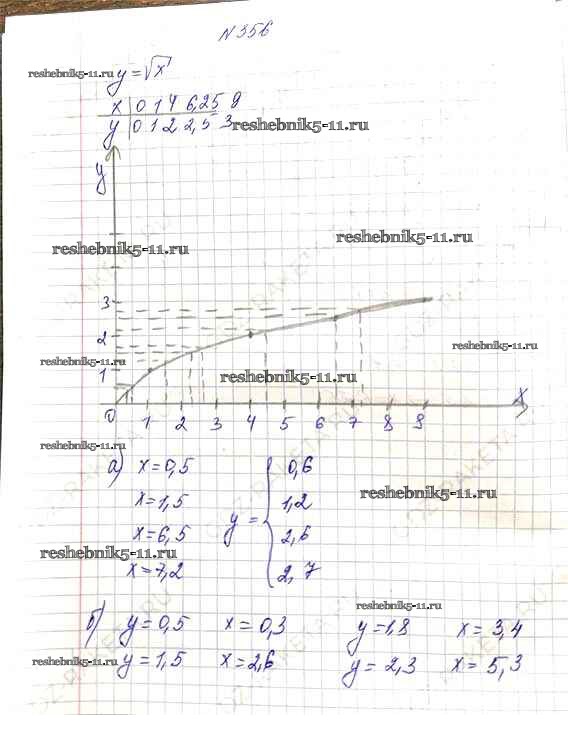 N 356
reshebnik5-11.ru y=√x
x 0 1 4 6,25 9
y 0 1 2 2,5 3 reshebnik5-11.ru
y
reshebnik5-11.ru reshebnik5-11.ru
3
2
reshebnik5-11.ru reshebnik5-11.ru
1 reshebnik5-11.ru
x
0 1 2 3 4 5 6 7 8 9
а) x=0,5 0,6
x=1,5 y= 1,2 reshebnik5-11.ru
x=6,5 2,6
reshebnik5-11.ru
x=7,2 2,7
reshebnik5-11.ru
б) y=0,5 x=0,3 y=1,8 x=3,4
reshebnik5-11.ru y=1,5 x=2,6 y=2,3 x=5,3